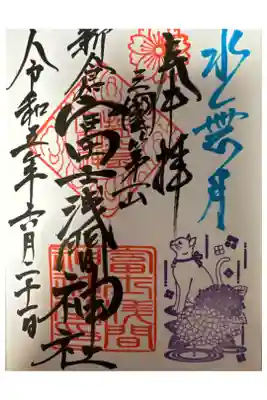 水無月
奉拝
三國第一山
新倉
富士浅間神社
令和五年六月二十一日